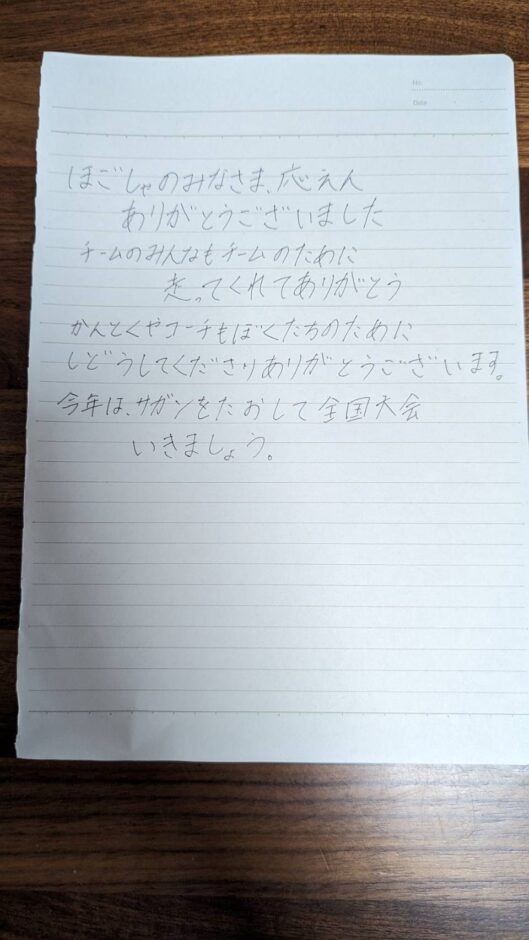 No.
Date
ほごしゃのみなさま、応えん
ありがとうございました
チームのみんなもチームのために
走ってくれてありがとう
かんとくやコーチもぼくたちのために
しどうしてくださりありがとうございます。
今年は、サガンをたおして全国大会
いきましょう。